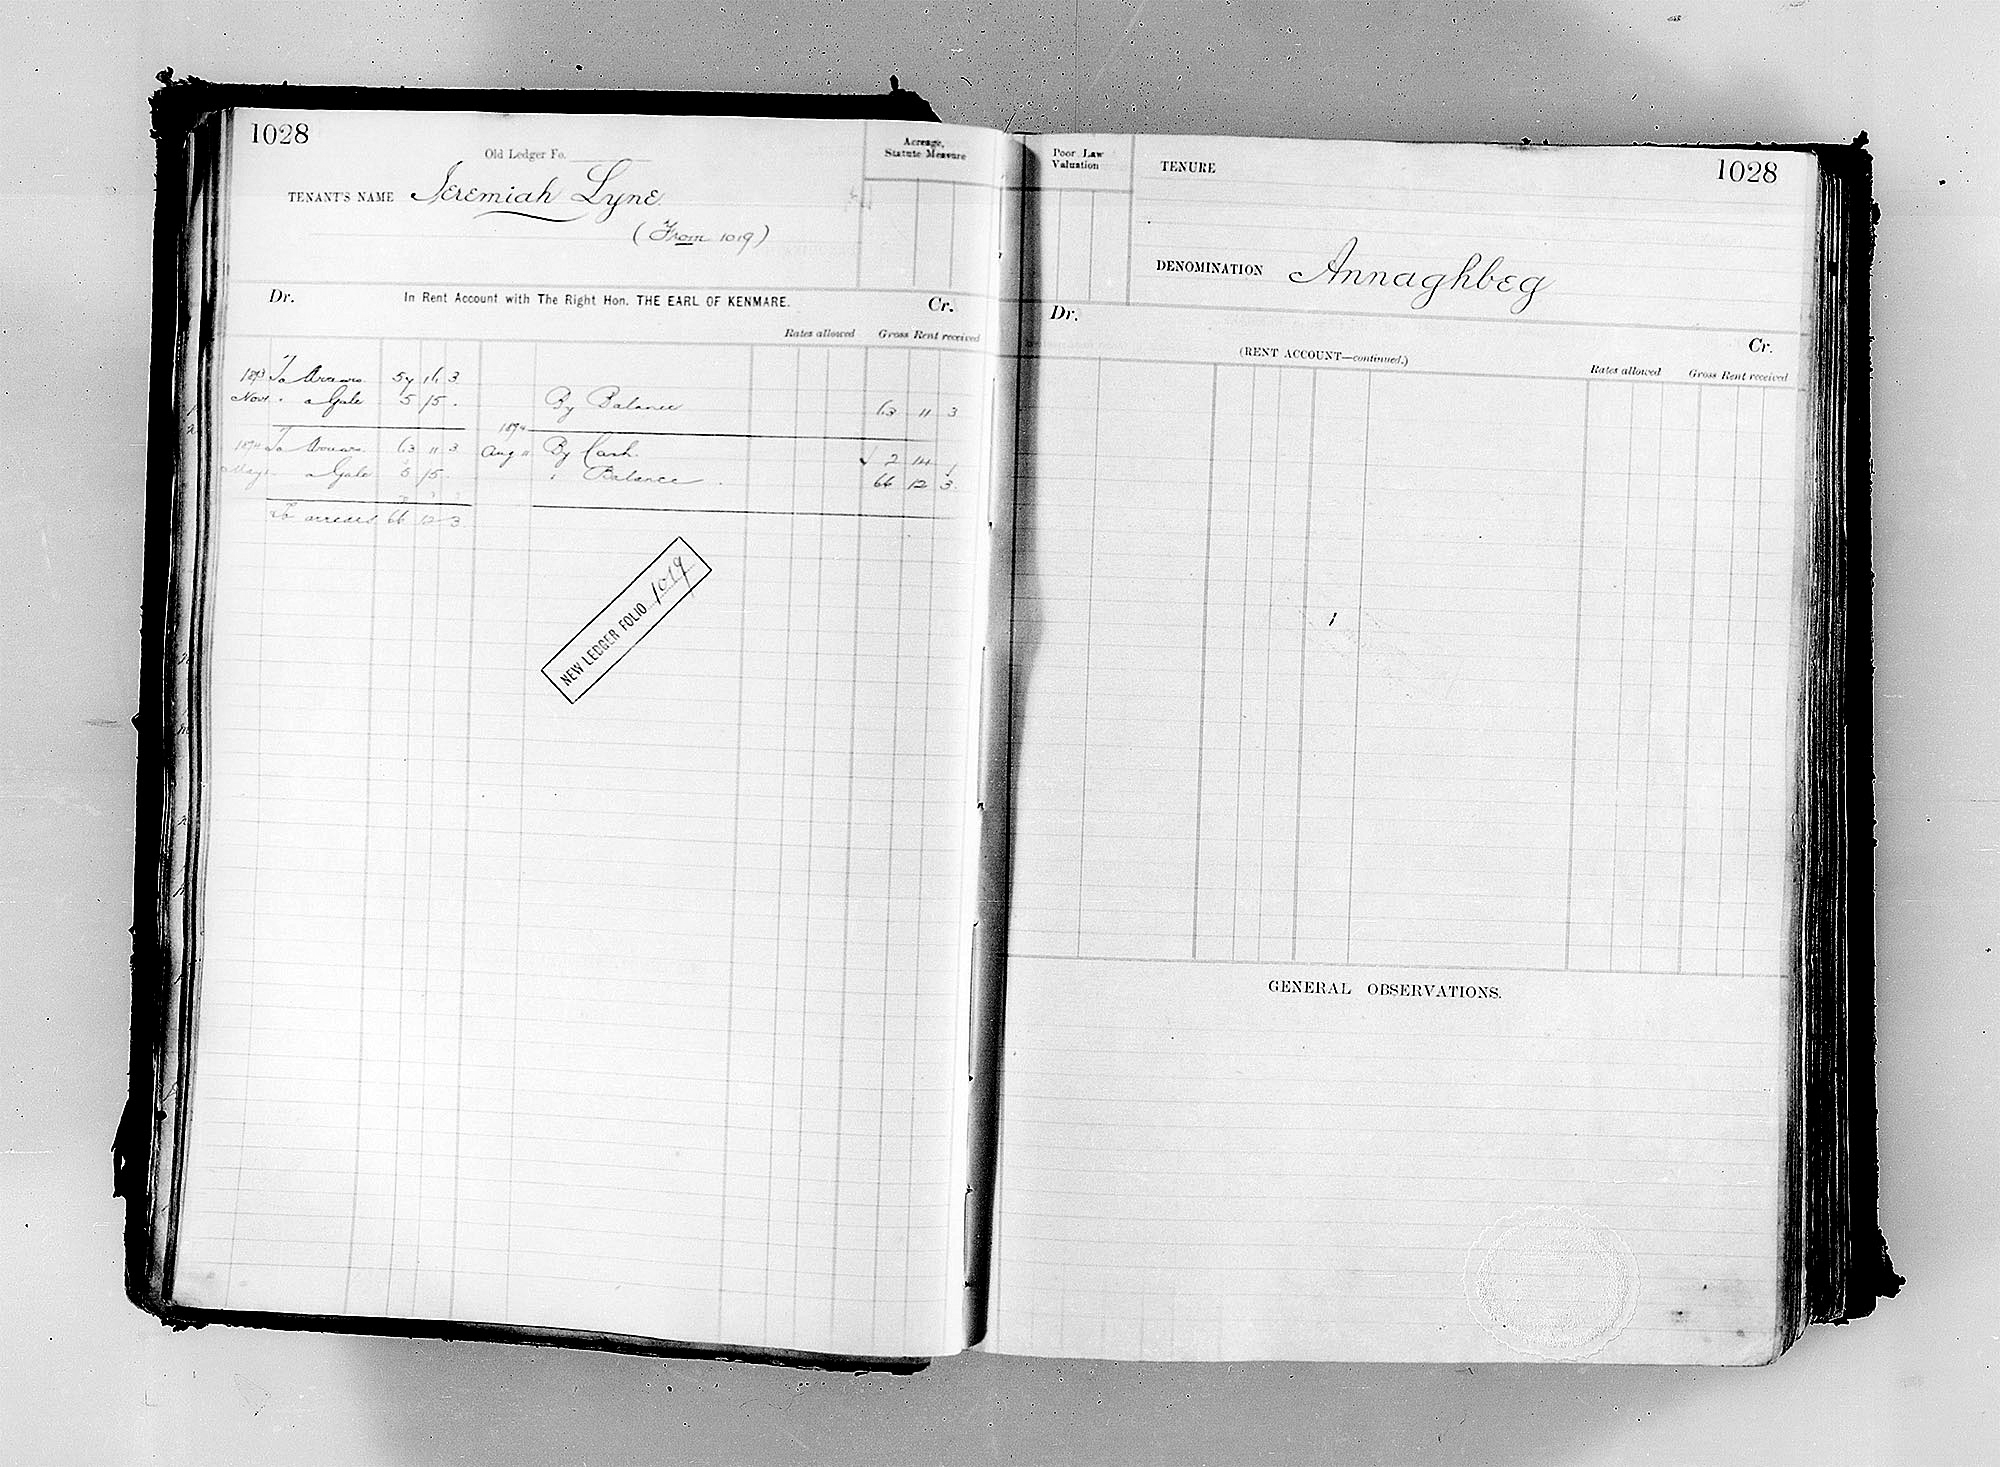 1028
Old Ledger Fo.
TENANT'S NAME Jeremiah Lyne
(From 1019)
Acreage,
Statute Measure
Dr. In Rent Account with The Right Hon. THE EARL OF KENMARE. Cr.
Rates allowed Gross Rent received
1893 To Arrears 57 16 3
Nov. " a Gale 5 15 . By Balance 63 11 3
1894
1894 To Arrears 63 11 3 Aug 11 By Cash 2 14
May a Gale 5 15 . " Balance 66 12 3
To arrears 66 12 3
NEW LEDGER FOLIO 1019
Poor Law
Valuation
TENURE
1028
DENOMINATION Annaghbeg
Dr. Cr.
(RENT ACCOUNT—continued.)
Rates allowed Gross Rent received
GENERAL OBSERVATIONS.